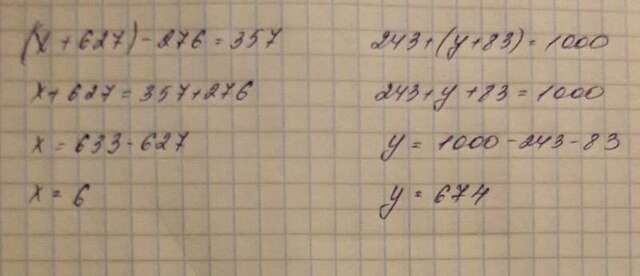 (x + 627) - 276 = 357
x + 627 = 357 + 276
x = 633 - 627
x = 6
243 + (y + 83) = 1000
243 + y + 83 = 1000
y = 1000 - 243 - 83
y = 674